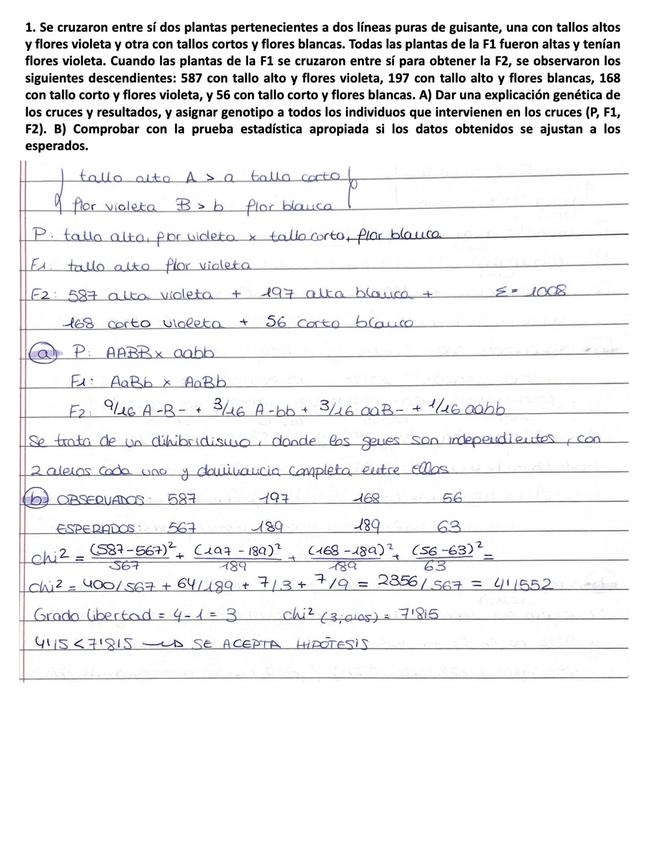 1. Se cruzaron entre sí dos plantas pertenecientes a dos líneas puras de guisante, una con tallos altos
y flores violeta y otra con tallos cortos y flores blancas. Todas las plantas de la F1 fueron altas y tenían
flores violeta. Cuando las plantas de la F1 se cruzaron entre sí para obtener la F2, se observaron los
siguientes descendientes: 587 con tallo alto y flores violeta, 197 con tallo alto y flores blancas, 168
con tallo corto y flores violeta, y 56 con tallo corto y flores blancas. A) Dar una explicación genética de
los cruces y resultados, y asignar genotipo a todos los individuos que intervienen en los cruces (P, F1,
F2). B) Comprobar con la prueba estadística apropiada si los datos obtenidos se ajustan a los
esperados.
tallo alto A > a tallo corto
flor violeta B > b flor blanca
P: tallo alto, flor violeta x tallo corto, flor blanca
F1: tallo alto flor violeta
F2: 587 alta violeta + 197 alta blanca + Σ = 1008
168 corto violeta + 56 corto blanco
a) P: AABB x aabb
F1: AaBb x AaBb
F2: 9/16 A-B- + 3/16 A-bb + 3/16 aaB- + 1/16 aabb
Se trata de un dihibridismo, donde los genes son independientes, con
2 alelos cada uno y dominancia completa entre ellos
b) OBSERVADOS: 587 197 168 56
ESPERADOS: 567 189 189 63
chi² = (587-567)²/567 + (197-189)²/189 + (168-189)²/189 + (56-63)²/63 =
chi² = 400/567 + 64/189 + 7/3 + 7/9 = 2356/567 = 4'1552
Grado libertad = 4-1 = 3 chi² (3; 0'05) = 7'815
4'15 < 7'815 → SE ACEPTA HIPÓTESIS